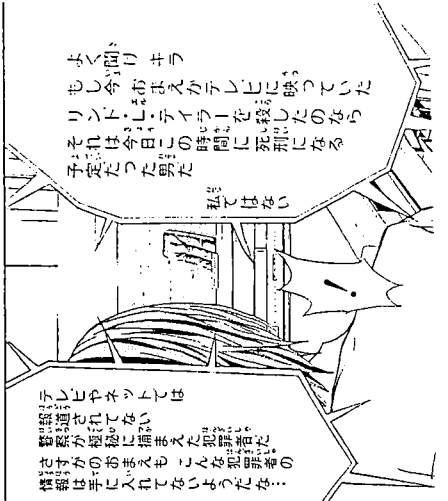 よく聞け キラ
もし今 おまえがテレビに映っていた
リンド・L・テイラーを殺したのなら
それは今日この時間に死刑になる
予定だった男だ
私ではない
！
テレビやネットでは
報道されてない
警察が極秘に捕まえた犯罪者だ
さすがのおまえも こんな犯罪者の
情報は手に入れてないようだな…